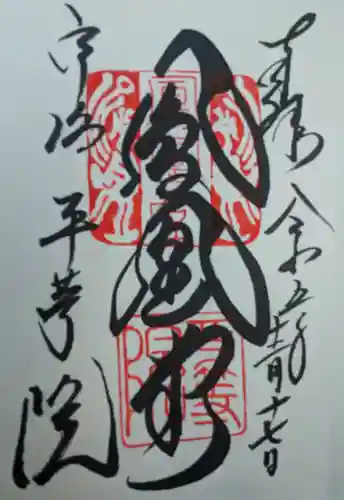 奉拝 令和五年十二月十七日
鳳凰殿
宇治 平等院